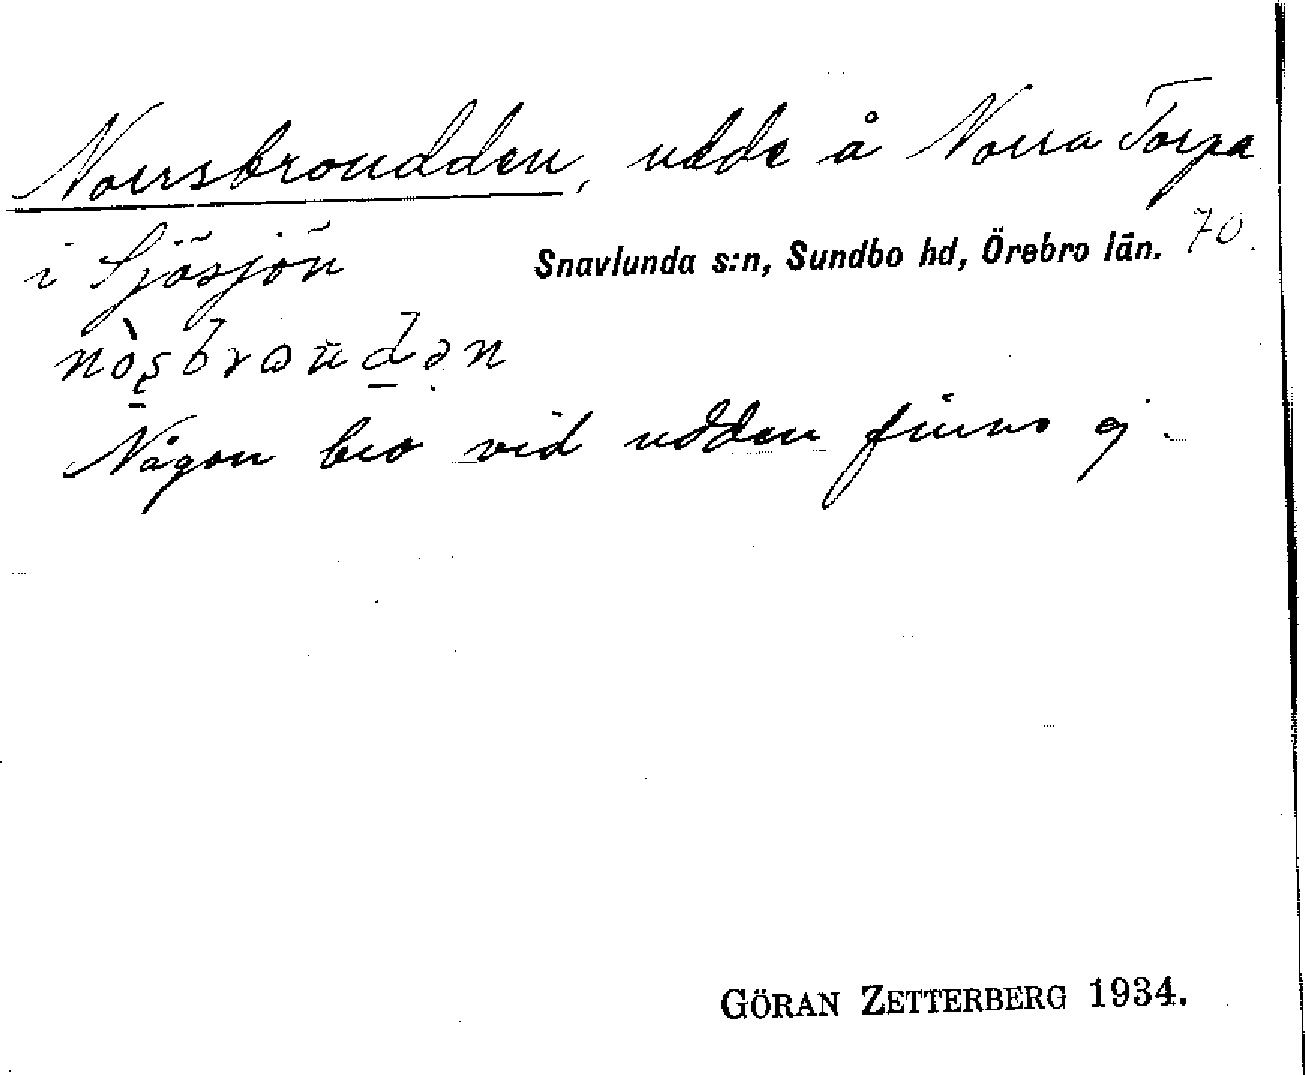 Norrsbroudden, udde å Norra Torpa
i Sjösjön Snavlunda s:n, Sundbo hd, Örebro län. 70.
Någon bro vid udden finns ej.
GÖRAN ZETTERBERG 1934.